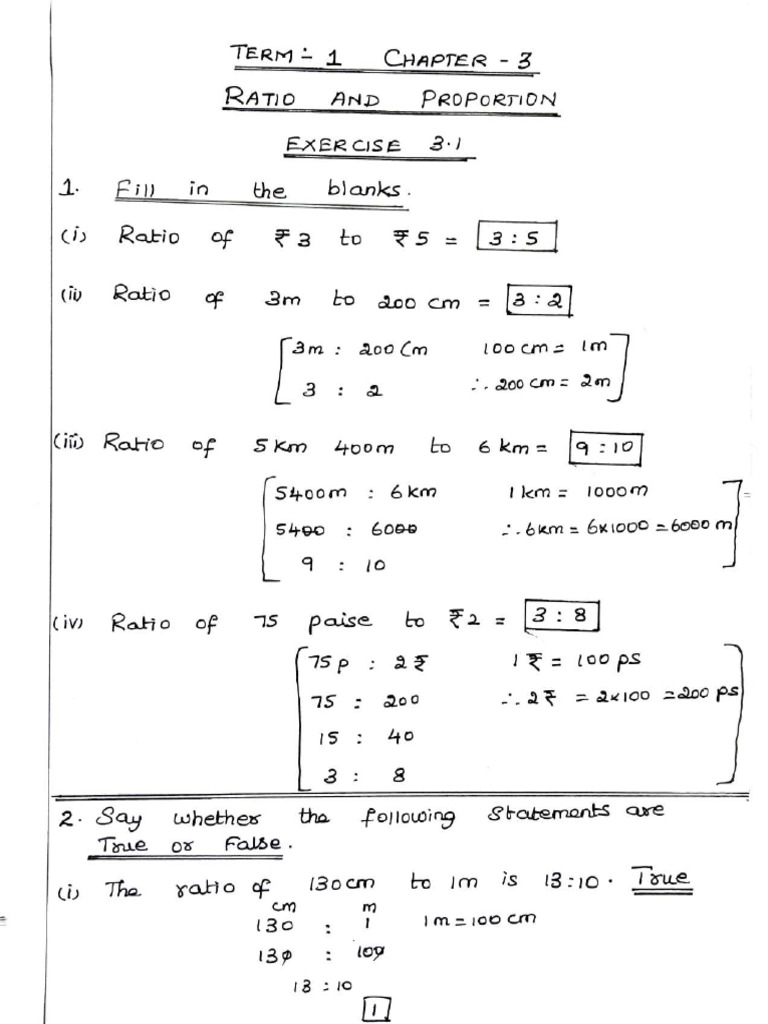 TERM :- 1 CHAPTER - 3
RATIO AND PROPORTION
EXERCISE 3.1
1. Fill in the blanks.
(i) Ratio of ₹3 to ₹5 = 3 : 5
(ii) Ratio of 3m to 200 cm = 3 : 2
3m : 200 Cm 100 cm = 1m
3 : 2 ∴ 200 cm = 2m
(iii) Ratio of 5 km 400m to 6 km = 9 : 10
5400m : 6 km 1 km = 1000m
5400 : 6000 ∴ 6 km = 6×1000 = 6000 m
9 : 10
(iv) Ratio of 75 paise to ₹2 = 3 : 8
75 p : 2 ₹ 1 ₹ = 100 ps
75 : 200 ∴ 2 ₹ = 2×100 = 200 ps
15 : 40
3 : 8
2. Say whether the following statements are
True or False.
(i) The ratio of 130cm to 1m is 13:10. True
cm m
130 : 1 1m = 100 cm
130 : 100
13 : 10
1